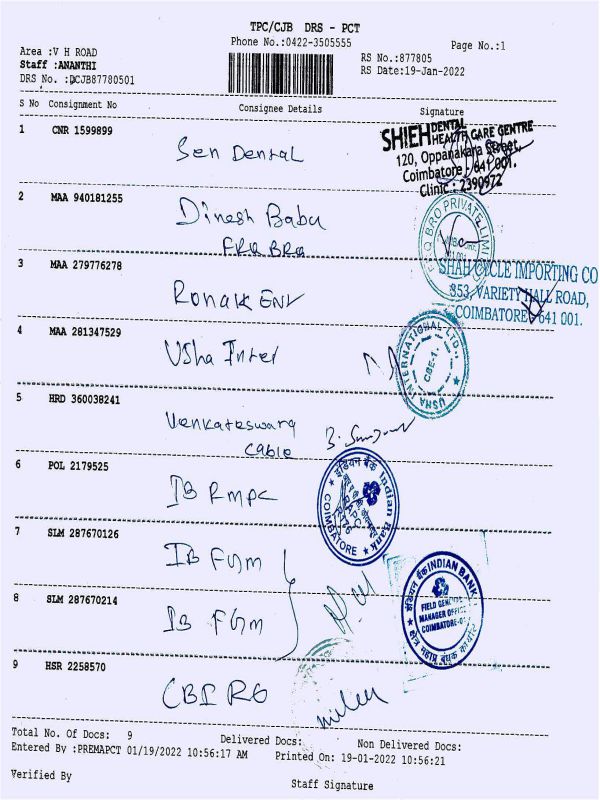 TPC/CJB DRS - PCT
Phone No.:0422-3505555
Page No.:1
Area :V H ROAD
Staff :ANANTHI
DRS No. :DCJB87780501
RS No.:877805
RS Date:19-Jan-2022
S No Consignment No Consignee Details Signature
1 CNR 1599899 Sen Dental
SHIEH DENTAL HEALTH CARE CENTRE
120, Oppanakara Street,
Coimbatore - 641 001.
Clinic : 2390972
2 MAA 940181255 Dinesh Babu
FRQ BRO
BRO PRIVATE LIMI
3 MAA 279776278 Ronak Ent
SHAH CYCLE IMPORTING CO
353, VARIETY HALL ROAD,
COIMBATORE - 641 001.
4 MAA 281347529 Usha Inter
USHA INTERNATIONAL LTD.,
CBE-1.
5 HRD 360038241 Venkateswara
Cable
6 POL 2179525 IB RMPC
इंडियन बैंक Indian Bank
RAPC
COIMBATORE
7 SLM 287670126 IB FGM
8 SLM 287670214 IB FGM
इंडियन बैंक INDIAN BANK
FIELD GENERAL
MANAGER OFFICE
COIMBATORE-01
9 HSR 2258570 CBI RO
Total No. Of Docs: 9 Delivered Docs: Non Delivered Docs:
Entered By :PREMAPCT 01/19/2022 10:56:17 AM Printed On: 19-01-2022 10:56:21
Verified By
Staff Signature